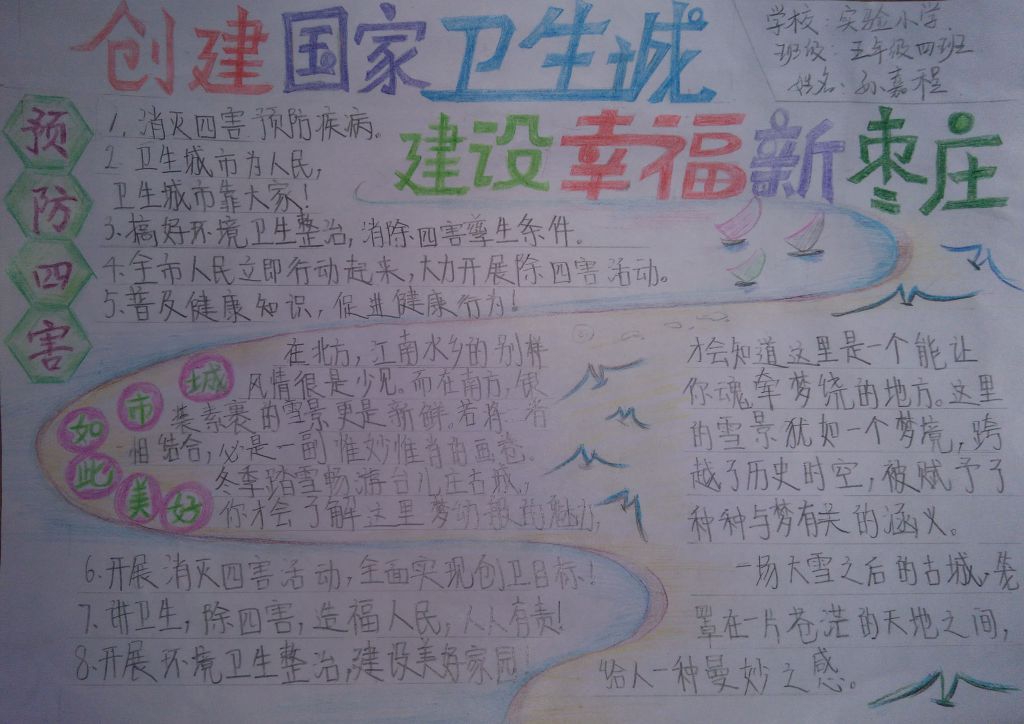 创建国家卫生城
学校:实验小学
班级:五年级四班
姓名:孙嘉程
建设幸福新枣庄
预防四害
1、消灭四害预防疾病。
2、卫生城市为人民,
卫生城市靠大家!
3、搞好环境卫生整治,消除四害孳生条件。
4、全市人民立即行动起来,大力开展除四害活动。
5、普及健康知识,促进健康行为!
城市如此美好
在北方,江南水乡的别样
风情很是少见。而在南方,银
装素裹的雪景更是新鲜。若将二者
相结合,必是一副惟妙惟肖的画卷。
冬季踏雪畅游台儿庄古城,
你才会了解这里梦幻般的魅力,
才会知道这里是一个能让
你魂牵梦绕的地方。这里
的雪景犹如一个梦境,跨
越了历史时空,被赋予了
种种与梦有关的涵义。
一场大雪之后的古城,笼
罩在一片苍茫的天地之间,
给人一种曼妙之感。
6、开展消灭四害活动,全面实现创卫目标!
7、讲卫生,除四害,造福人民,人人有责!
8、开展环境卫生整治,建设美好家园!